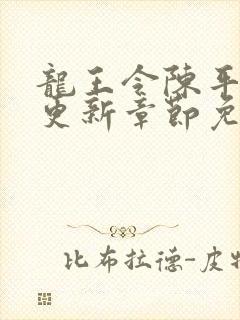 龍王令陳平
更新章節免
比布拉德-皮特